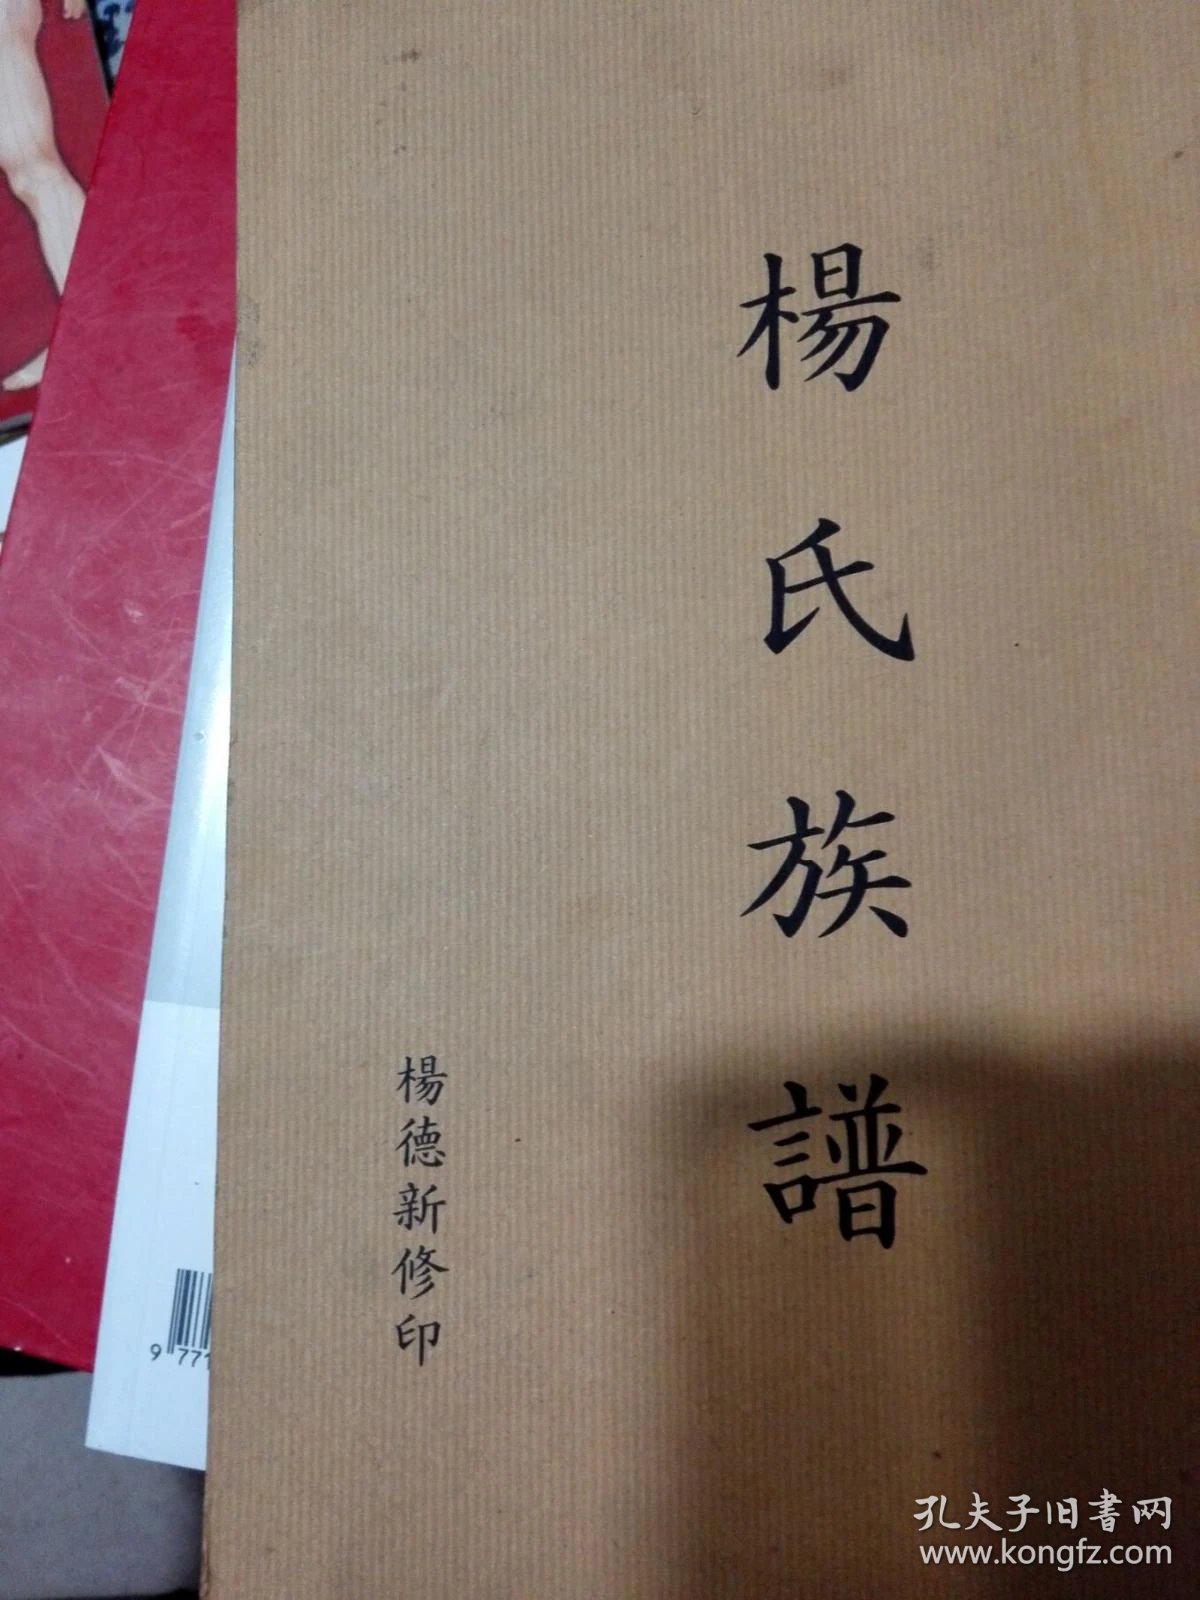 楊氏族譜
楊德新修印
9 771
孔夫子旧書网
www.kongfz.com